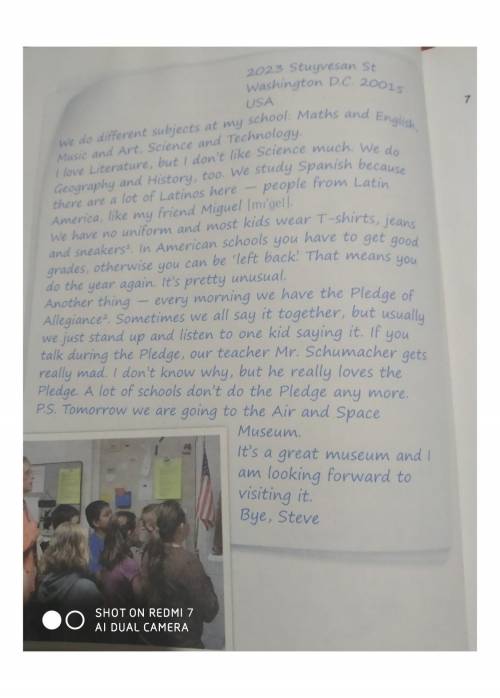 2023 Stuyvesan St
Washington D.C. 20015
USA
7
We do different subjects at my school: Maths and English,
Music and Art, Science and Technology.
I love Literature, but I don't like Science much. We do
Geography and History, too. We study Spanish because
there are a lot of Latinos here — people from Latin
America, like my friend Miguel |mi'gel|.
We have no uniform and most kids wear T-shirts, jeans
and sneakers¹. In American schools you have to get good
grades, otherwise you can be 'left back.' That means you
do the year again. It's pretty unusual.
Another thing — every morning we have the Pledge of
Allegiance². Sometimes we all say it together, but usually
we just stand up and listen to one kid saying it. If you
talk during the Pledge, our teacher Mr. Schumacher gets
really mad. I don't know why, but he really loves the
Pledge. A lot of schools don't do the Pledge any more.
P.S. Tomorrow we are going to the Air and Space
Museum.
It's a great museum and I
am looking forward to
visiting it.
Bye, Steve
SHOT ON REDMI 7
AI DUAL CAMERA